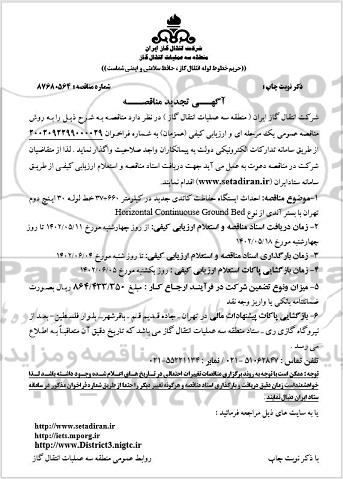 شرکت انتقال گاز ایران
منطقه سه عملیات انتقال گاز
((حریم خطوط لوله انتقال گاز ، حافظ سلامتی و ایمنی شماست))
ذکر نوبت چاپ :
شماره مناقصه : ۸۷۶۸۰۵۶۴
آگهـــی تجدید مناقصــــه
شرکت انتقال گاز ایران ( منطقه سه عملیات انتقال گاز ) در نظر دارد مناقصه به شرح ذیل را به روش
مناقصه عمومی یک مرحله ای و ارزیابی کیفی (همزمان) به شماره فراخوان ۲۰۰۲۰۹۲۲۹۹۰۰۰۰۲۹
از طریق سامانه تدارکات الکترونیکی دولت به پیمانکاران واجد صلاحیت واگذار نماید . لذا از متقاضیان
شرکت در مناقصه دعوت به عمل می آید جهت دریافت اسناد مناقصه و استعلام ارزیابی کیفی از طریق
سامانه ستاد ایران (www.setadiran.ir) اقدام نمایند.
۱-موضوع مناقصه: احداث ایستگاه حفاظت کاتدی جدید در کیلومتر ۶۶۰+۳۷ خط لوله ۳۰ اینچ دوم
تهران با بستر آندی از نوع Horizontal Continuouse Ground Bed
۲- زمان دریافت اسناد مناقصه و استعلام ارزیابی کیفی: از روز چهارشنبه مورخ ۱۴۰۲/۰۵/۱۱ تا روز
چهارشنبه مورخ ۱۴۰۲/۰۵/۱۸
۳- زمان بارگذاری اسناد مناقصه و استعلام ارزیابی کیفی: تا روز شنبه مورخ ۱۴۰۲/۰۶/۰۴
۴- زمان بازگشایی پاکات استعلام ارزیابی کیفی : روز یکشنبه مورخ ۱۴۰۲/۰۶/۰۵
۵- میزان ونوع تضمین شرکت در فرآیند ارجاع کار : مبلغ ۸۶۴/۴۳۳/۲۵۰ ریال بصورت
ضمانتنامه بانکی یا واریز وجه نقد
۶- بازگشایی پاکات پیشنهادات مالی در تهران – جاده قدیم قم – باقرشهر – بلوار فلسطین – بعد از
نیروگاه گازی ری – ستاد منطقه سه عملیات انتقال گاز می باشد که تاریخ دقیق آن متعاقباً به اطلاع
می رسد .
تلفن تماس : ۵۱۰۶۲۸۴۷-۰۲۱ / نمابر : ۵۵۲۲۱۱۳۴-۰۲۱
توجه : ممکن است با توجه به روند برگزاری مناقصات تغییرات احتمالی در تاریخ های اعلام شده وجود داشته باشد لذا
خواهشمند است زمان دقیق دریافت و بارگذاری اسناد مناقصه و هرگونه تغییر دیگر را حتما از طریق شماره فراخوان مذکور در سامانه
ستاد ایران دنبال نمایند.
یا به سایت های ذیل مراجعه فرمائید :
http://www.setadiran.ir
http://iets.mporg.ir
http://www.District3.nigtc.ir
با ذکر نوبت چاپ
روابط عمومی منطقه سه عملیات انتقال گاز